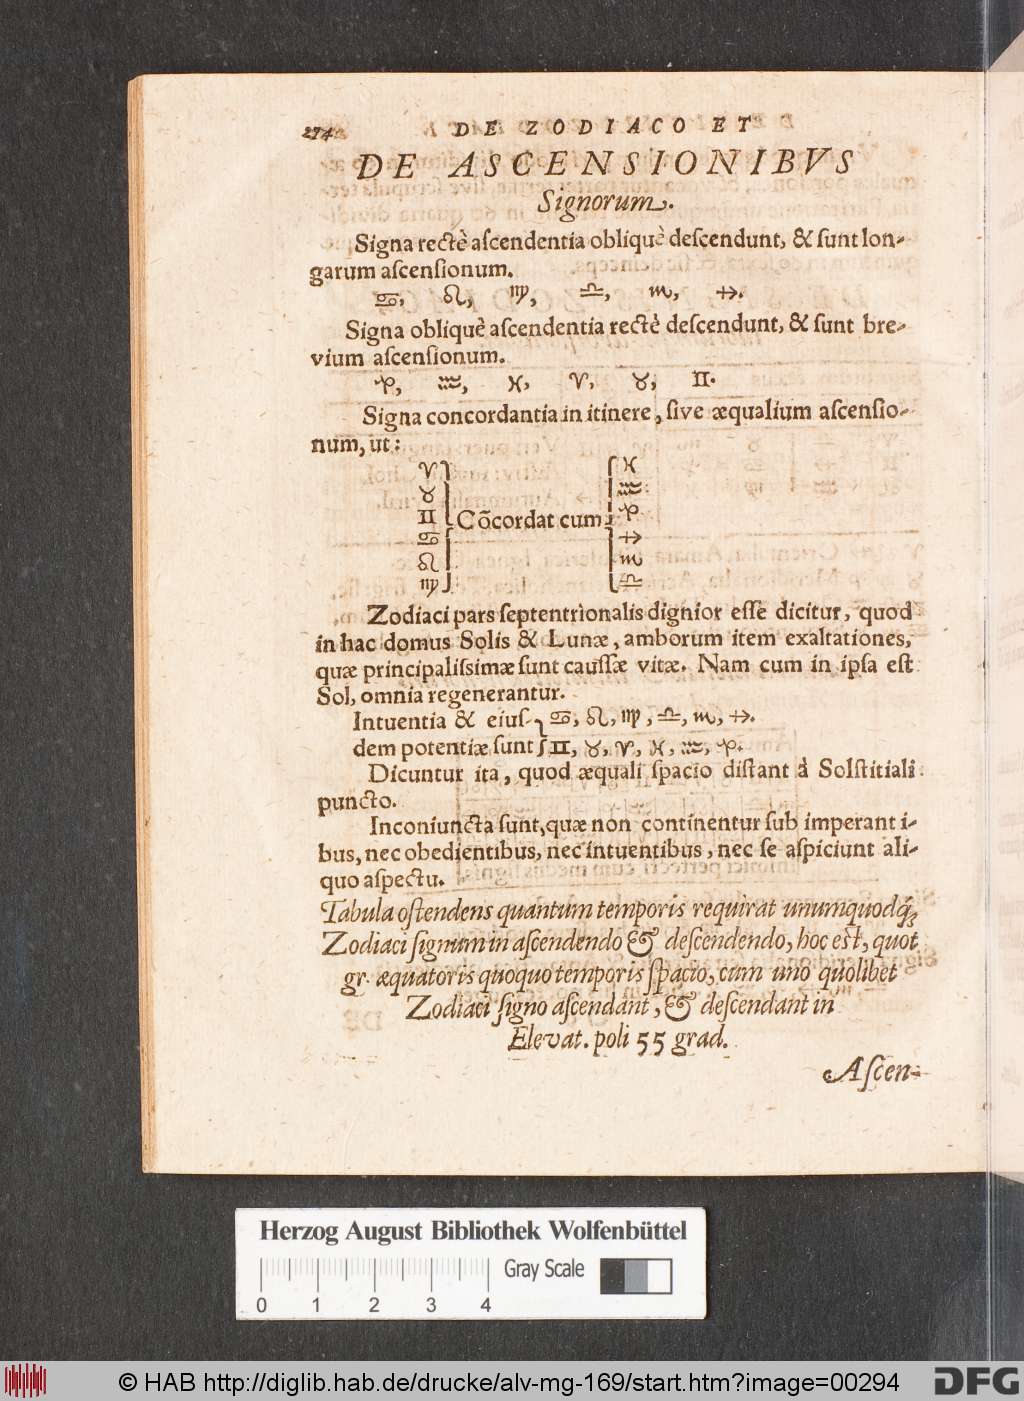 274 DE ZODIACO ET
DE ASCENSIONIBVS
Signorum.
Signa rectè aſcendentia obliquè deſcendunt, & ſunt lon-
garum aſcenſionum.
♋, ♌, ♍, ♎, ♏, ♐.
Signa obliquè aſcendentia rectè deſcendunt, & ſunt bre-
vium aſcenſionum.
♑, ♒, ♓, ♈, ♉, ♊.
Signa concordantia in itinere, ſive æqualium aſcenſio-
num, ut:
♈ ♓
♉ ♒
♊ Cōcordat cum ♑
♋ ♐
♌ ♏
♍ ♎
Zodiaci pars ſeptentrionalis dignior eſſe dicitur, quod
in hac domus Solis & Lunæ, amborum item exaltationes,
quæ principaliſsimæ ſunt cauſſæ vitæ. Nam cum in ipſa eſt
Sol, omnia regenerantur.
Intuentia & eiuſ- ♋, ♌, ♍, ♎, ♏, ♐.
dem potentiæ ſunt ♊, ♉, ♈, ♓, ♒, ♑.
Dicuntur ita, quod æquali ſpacio diſtant à Solſtitiali
puncto.
Inconiuncta ſunt, quæ non continentur ſub imperanti-
bus, nec obedientibus, nec intuentibus, nec ſe aſpiciunt ali-
quo aſpectu.
Tabula oſtendens quantum temporis requirat unumquodq́;
Zodiaci ſignum in aſcendendo & deſcendendo, hoc eſt, quot
gr. æquatoris quoquo temporis ſpacio, cum uno quolibet
Zodiaci ſigno aſcendant, & deſcendant in
Elevat. poli 55 grad.
Aſcen-
Herzog August Bibliothek Wolfenbüttel
Gray Scale
0 1 2 3 4
© HAB http://diglib.hab.de/drucke/alv-mg-169/start.htm?image=00294
DFG